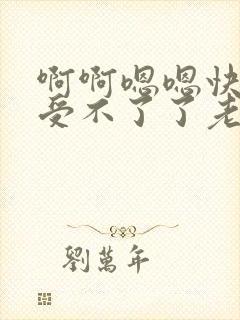 啊啊嗯嗯快
受不了了老
劉萬年